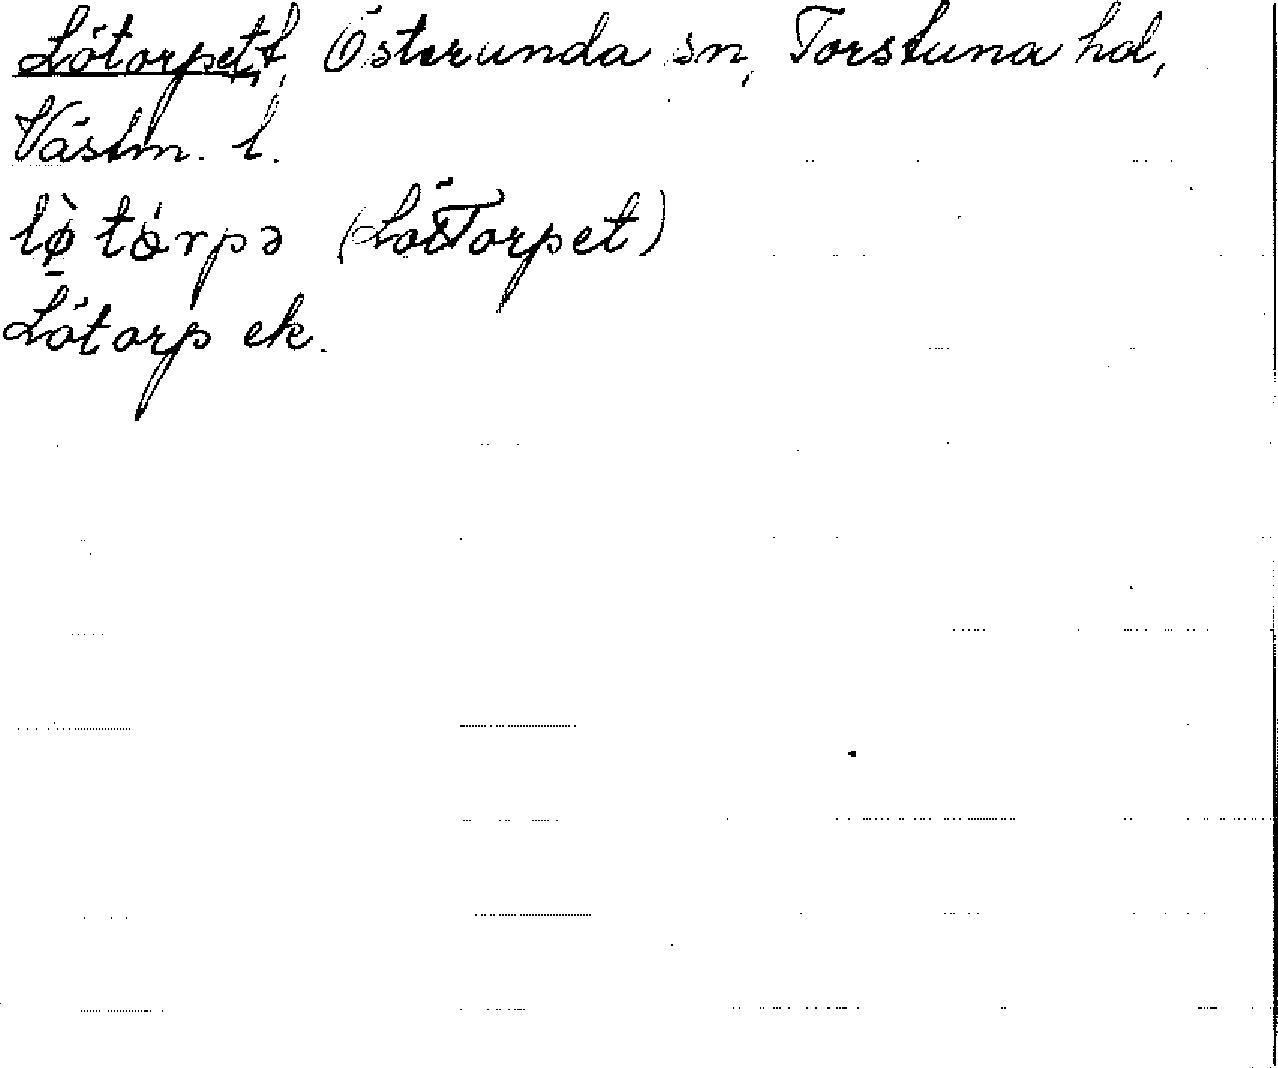 Lötorpet, Österunda sn, Torstuna hd,
Västm. l.
lø̀ tórpə (LötTorpet)
Lötorp ek.